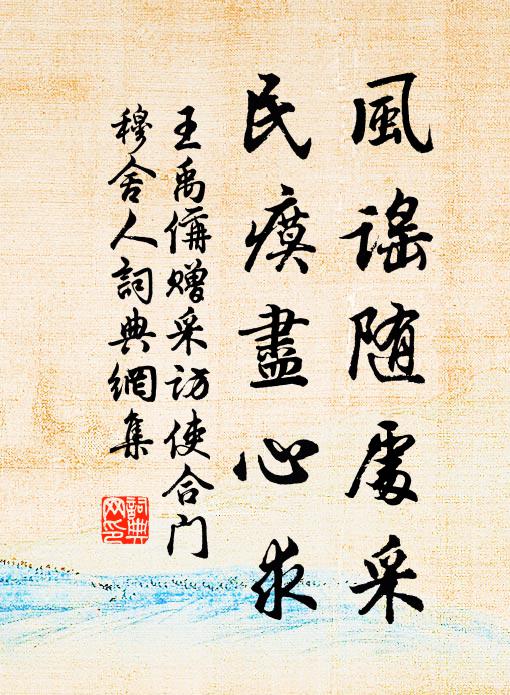 風謠随處采
民瘼盡心求
王禹偁赠采访使合门
穆舍人詞典網集
詞典网印